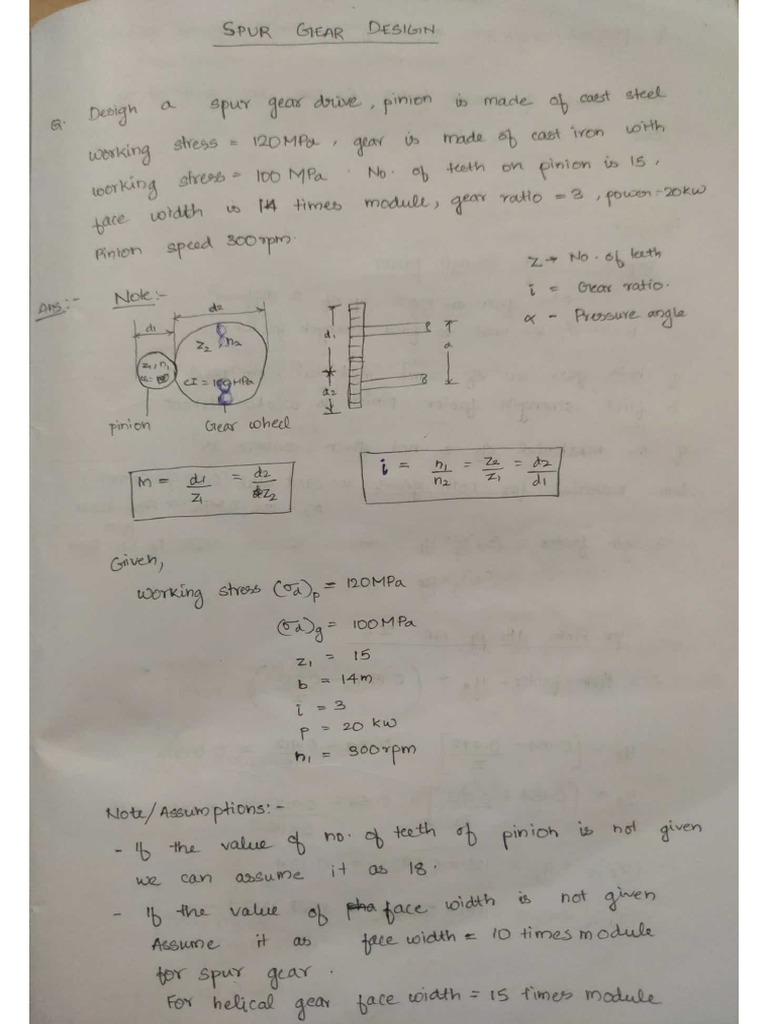 SPUR GEAR DESIGN
Q. Design a spur gear drive, pinion is made of cast steel
working stress = 120MPa, gear is made of cast iron with
working stress = 100 MPa. No. of teeth on pinion is 15,
face width is 14 times module, gear ratio = 3, power-20kw
Pinion speed 300rpm.
Z → No. of teeth
i = Gear ratio.
α - Pressure angle
Ans:- Note:-
d2
d1
Z2, n2
Z1, n1
CI = 100MPa
pinion
Gear wheel
d1
d2
a
M = d1/Z1 = d2/Z2
i = n1/n2 = Z2/Z1 = d2/d1
Given,
working stress (σd)p = 120MPa
(σd)g = 100MPa
Z1 = 15
b = 14m
i = 3
P = 20 kw
n1 = 300rpm
Note/Assumptions:-
- If the value of no. of teeth of pinion is not given
we can assume it as 18.
- If the value of face width is not given
Assume it as face width = 10 times module
for spur gear.
For helical gear face width = 15 times module